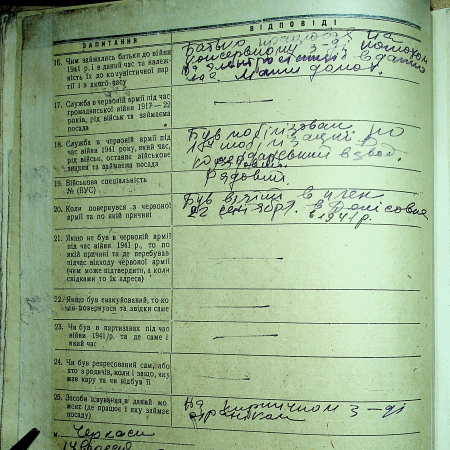 ЗАПИТАННЯ
ВІДПОВІДІ
16. Чим займались батьки до війни
1941 р. і в даний час та належ-
ність їх до комуністичної пар-
тії і з якого часу
Батько працював на
консервному з-ді
в данно
час. Мати дома.
17. Служба в червоній армії під час
громадянської війни 1917—22
роках, рід військ та займаєма
посада
18. Служба в червоній армії під
час війни 1941 року, який час,
рід військ, останнє військове
звання та займаєма посада
Був мобілізован
по мобілізації
взвод.
Рядовий
19. Військова спеціальність
№ (ВУС)
20. Коли повернувся з червоної
армії та по якій причині
Був взятий в плен
22 в Денисовке
в 1941 р.
21. Якщо не був в червоній армії
під час війни 1941 р., то по
якій причині та де перебував
підчас відходу червоної армії
(чим може підтвердити, а коли
свідками то їх адреса)
22. Якщо був евакуйований, то ко-
ли повернувся та звідки саме
23. Чи був в партизанах під час
війни 1941/р. та де саме і
який час
24. Чи був репресований сам, або
хто з родичів, коли і защо, яку
мав кару та чи відбув її
25. Засоби існування в даний мо-
мент (де працює і яку займає
посаду)
На кирпичном з-ді
м. Черкаси
14 вересня